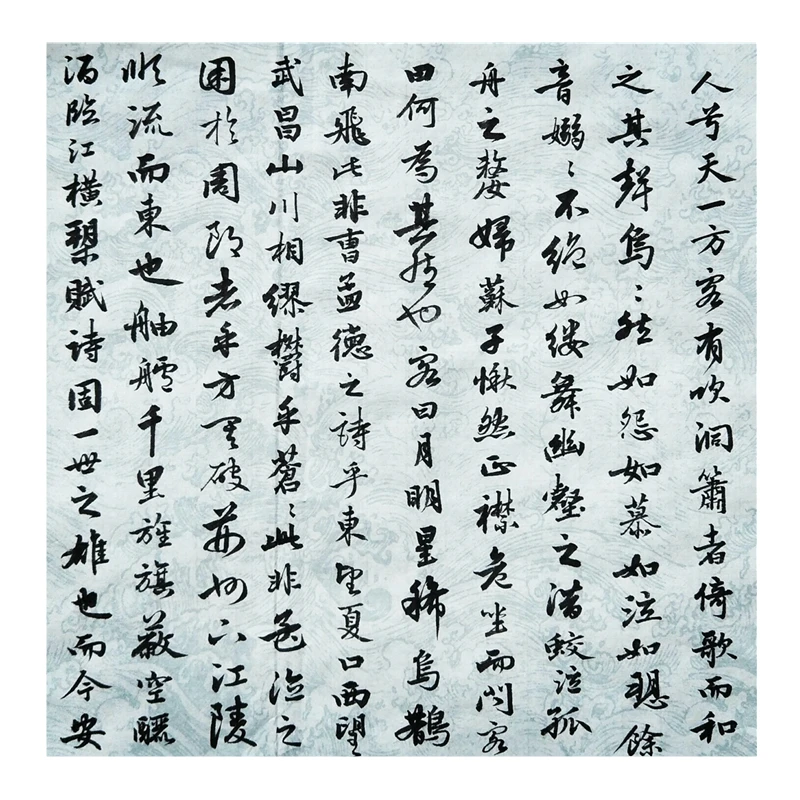 人兮天一方客有吹洞簫者倚歌而和
之其聲烏〻然如怨如慕如泣如愬餘
音嫋〻不絕如縷舞幽壑之潛蛟泣孤
舟之嫠婦蘇子愀然正襟危坐而問客
曰何為其然也客曰月明星稀烏鵲
南飛此非曹孟德之詩乎東望夏口西望
武昌山川相繆鬱乎蒼〻此非孟德之
困於周郎者乎方其破荊州下江陵
順流而東也舳艫千里旌旗蔽空釃
酒臨江橫槊賦詩固一世之雄也而今安